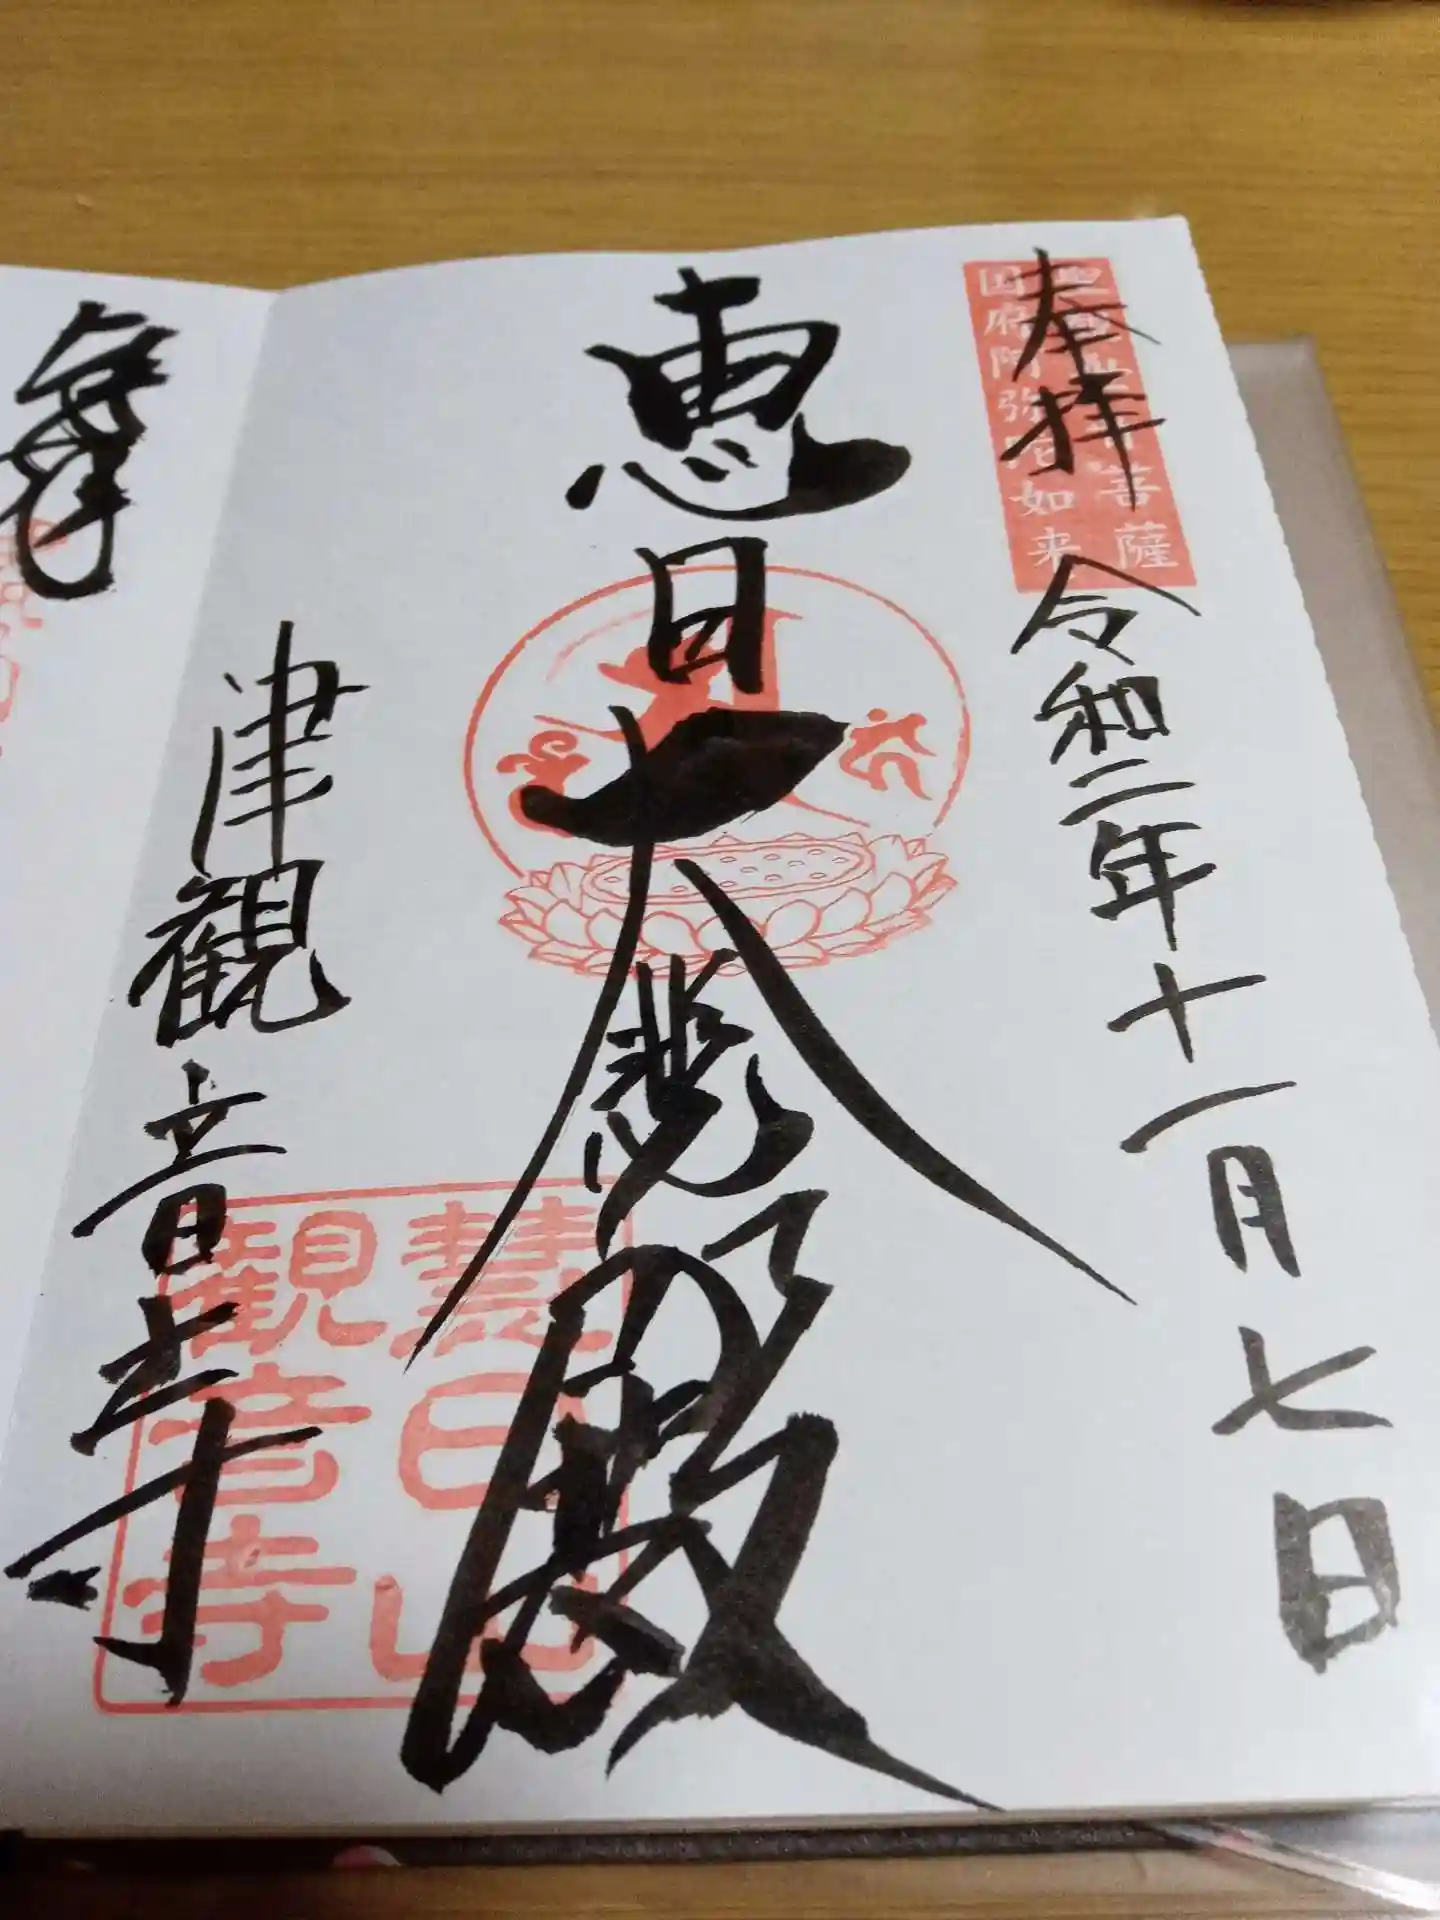 奉拝
国府阿弥陀如来
令和二年十一月七日
恵日大悲殿
津観音寺
慧日山
観音寺